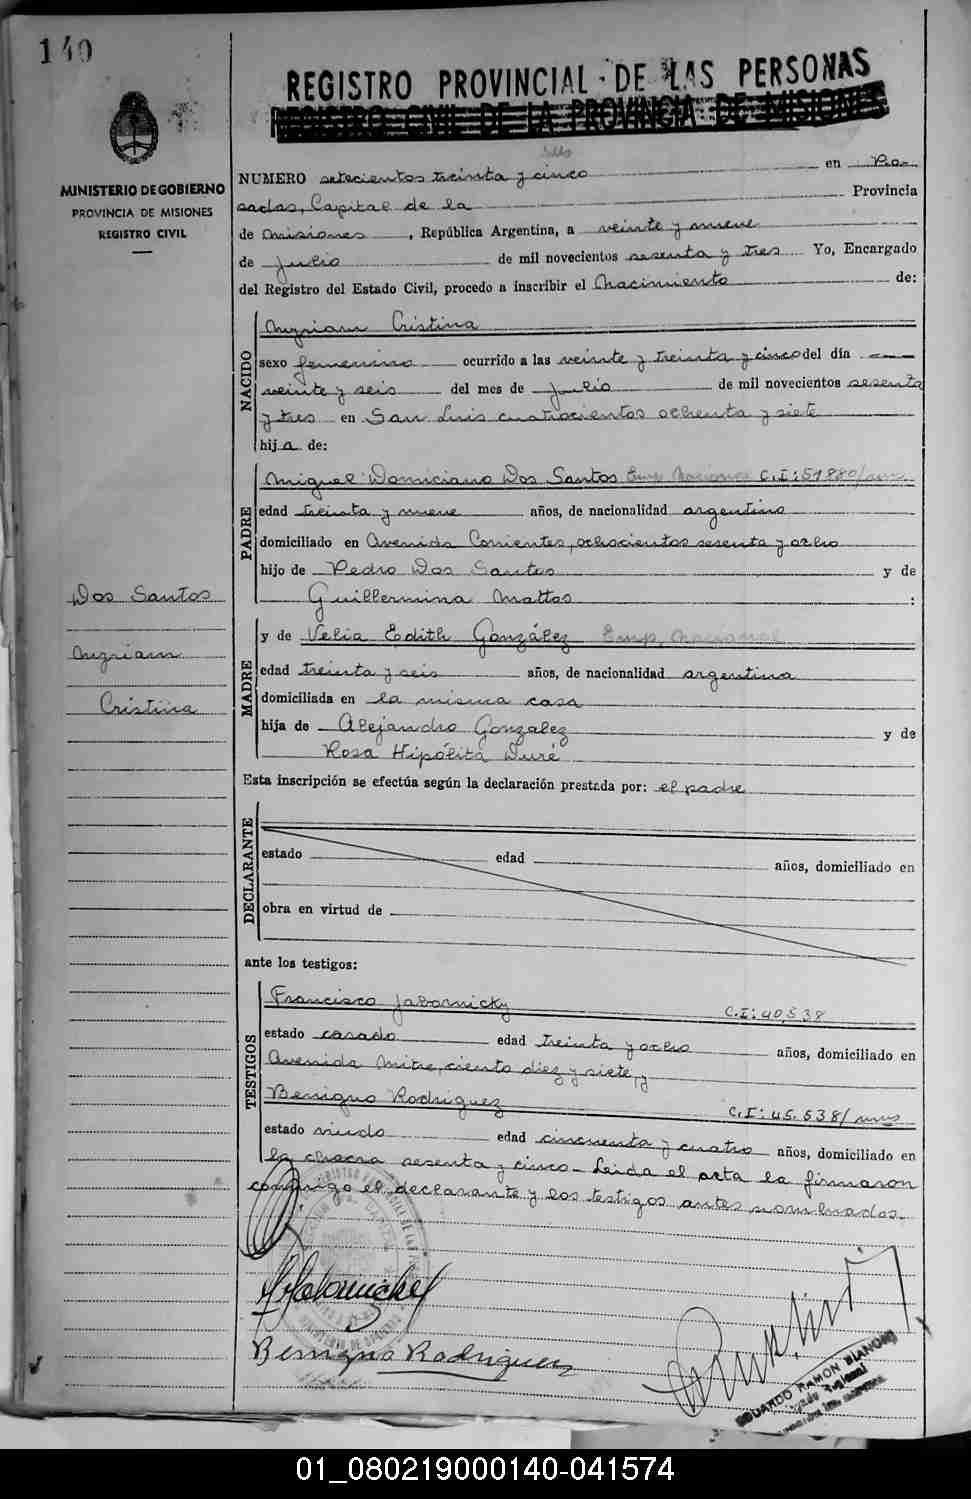 140
REGISTRO PROVINCIAL DE LAS PERSONAS
REGISTRO CIVIL DE LA PROVINCIA DE MISIONES
MINISTERIO DE GOBIERNO
PROVINCIA DE MISIONES
REGISTRO CIVIL
NUMERO setecientos treinta y cinco en Po-
sadas, Capital de la Provincia
de Misiones, República Argentina, a veinte y nueve
de Julio de mil novecientos sesenta y tres Yo, Encargado
del Registro del Estado Civil, procedo a inscribir el Nacimiento de:
NACIDO
Myriam Cristina
sexo femenino ocurrido a las veinte y treinta y cinco del día
veinte y seis del mes de Julio de mil novecientos sesenta
y tres en San Luis cuatrocientos ochenta y siete
hija de:
PADRE
Miguel Domiciano Dos Santos Emp. Nacional C.I: 51880/
edad treinta y nueve años, de nacionalidad argentino
domiciliado en Avenida Corrientes, ochocientos sesenta y ocho
hijo de Pedro Dos Santos y de
Guillermina Mattos :
Dos Santos
Myriam
Cristina
MADRE
y de Velia Edith González Emp. Nacional
edad treinta y seis años, de nacionalidad argentina
domiciliada en la misma casa
hija de Alejandro Gonzalez y de
Rosa Hipólita Duré
Esta inscripción se efectúa según la declaración prestada por: el padre
DECLARANTE
estado edad años, domiciliado en
obra en virtud de
ante los testigos:
TESTIGOS
Francisco Jabornicky C.I: 40.538
estado casado edad treinta y ocho años, domiciliado en
Avenida Mitre, ciento diez y siete, y
Benigno Rodriguez C.I: 45.538/
estado viudo edad cincuenta y cuatro años, domiciliado en
la chacra sesenta y cinco - Leida el acta la firmaron
conmigo el declarante y los testigos antes nombrados.
Benigno Rodriguez
EDUARDO RAMON BIANCHI
01_080219000140-041574